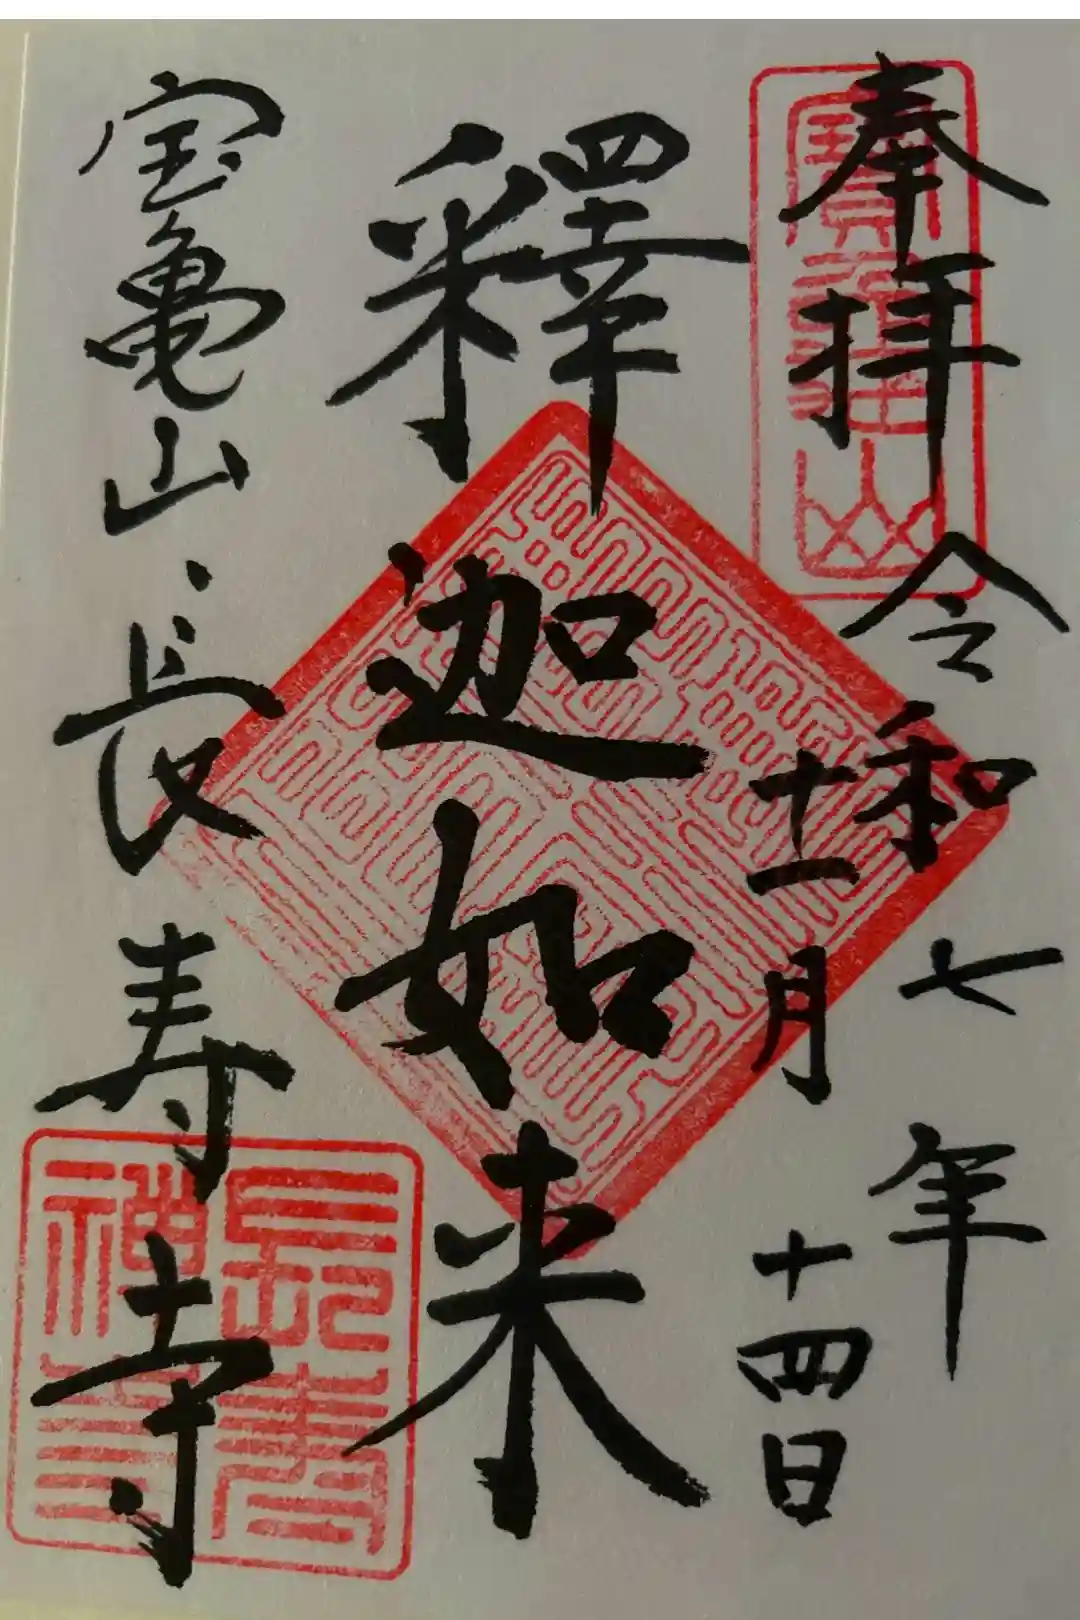 奉拝
令和七年
十二月十四日
釋迦如来
宝亀山、長寿寺
長壽
禪寺